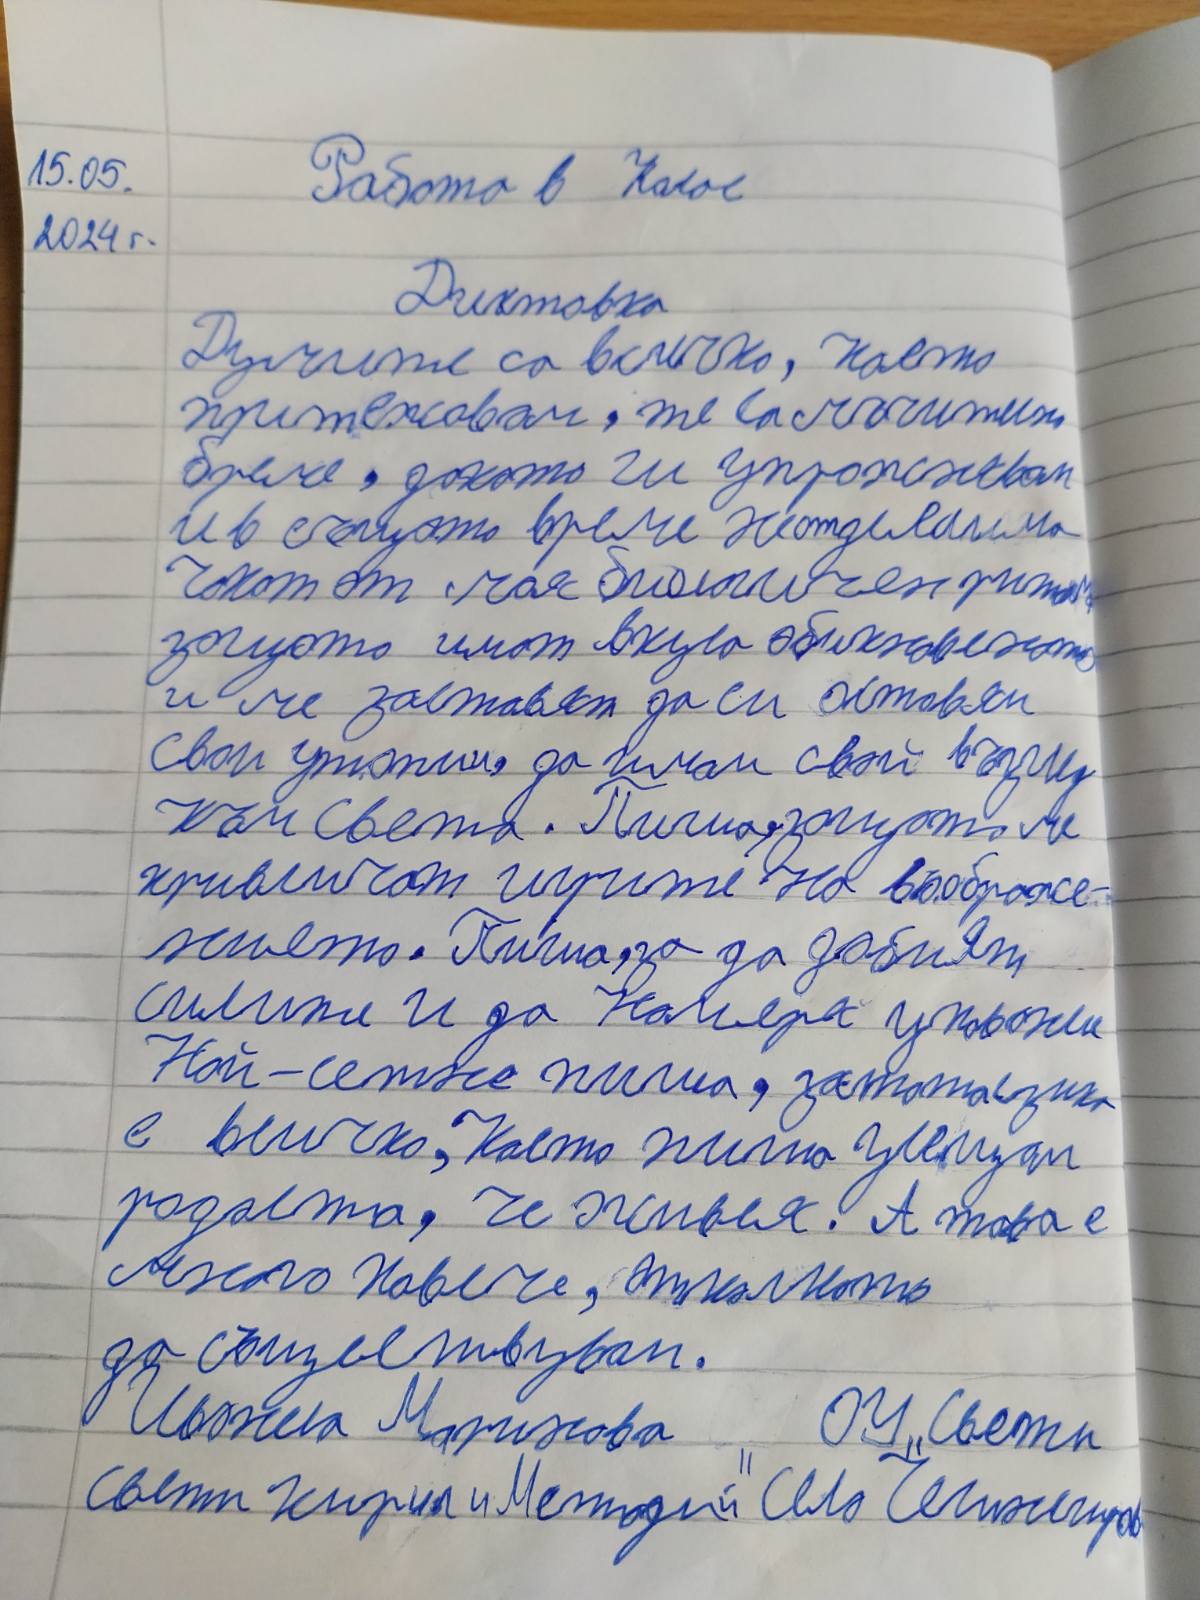 15.05.
2024 г.
Работа в Клас
Диктовка
Думите са всичко, което
притежавам, те са мъчително
бреме, докато ги упражнявам
и в същото време неотделима
част от моя биологичен ритъм
защото имат вкуса обикновеното
и ме заставят да си оставям
свои утопии, да имам свой възглед
към света. Пиша, защото ме
привличат игрите на въображе-
нието. Пиша, за да добият
силите и да намеря упование
Най-сетне пиша, защото езика
е всичко, Което пиша усещам
радостта, че живея. А това е
много повече, отколкото
да съществувам.
Ивжена Маринова ОУ „Свети
свети кирил и Методий" Село